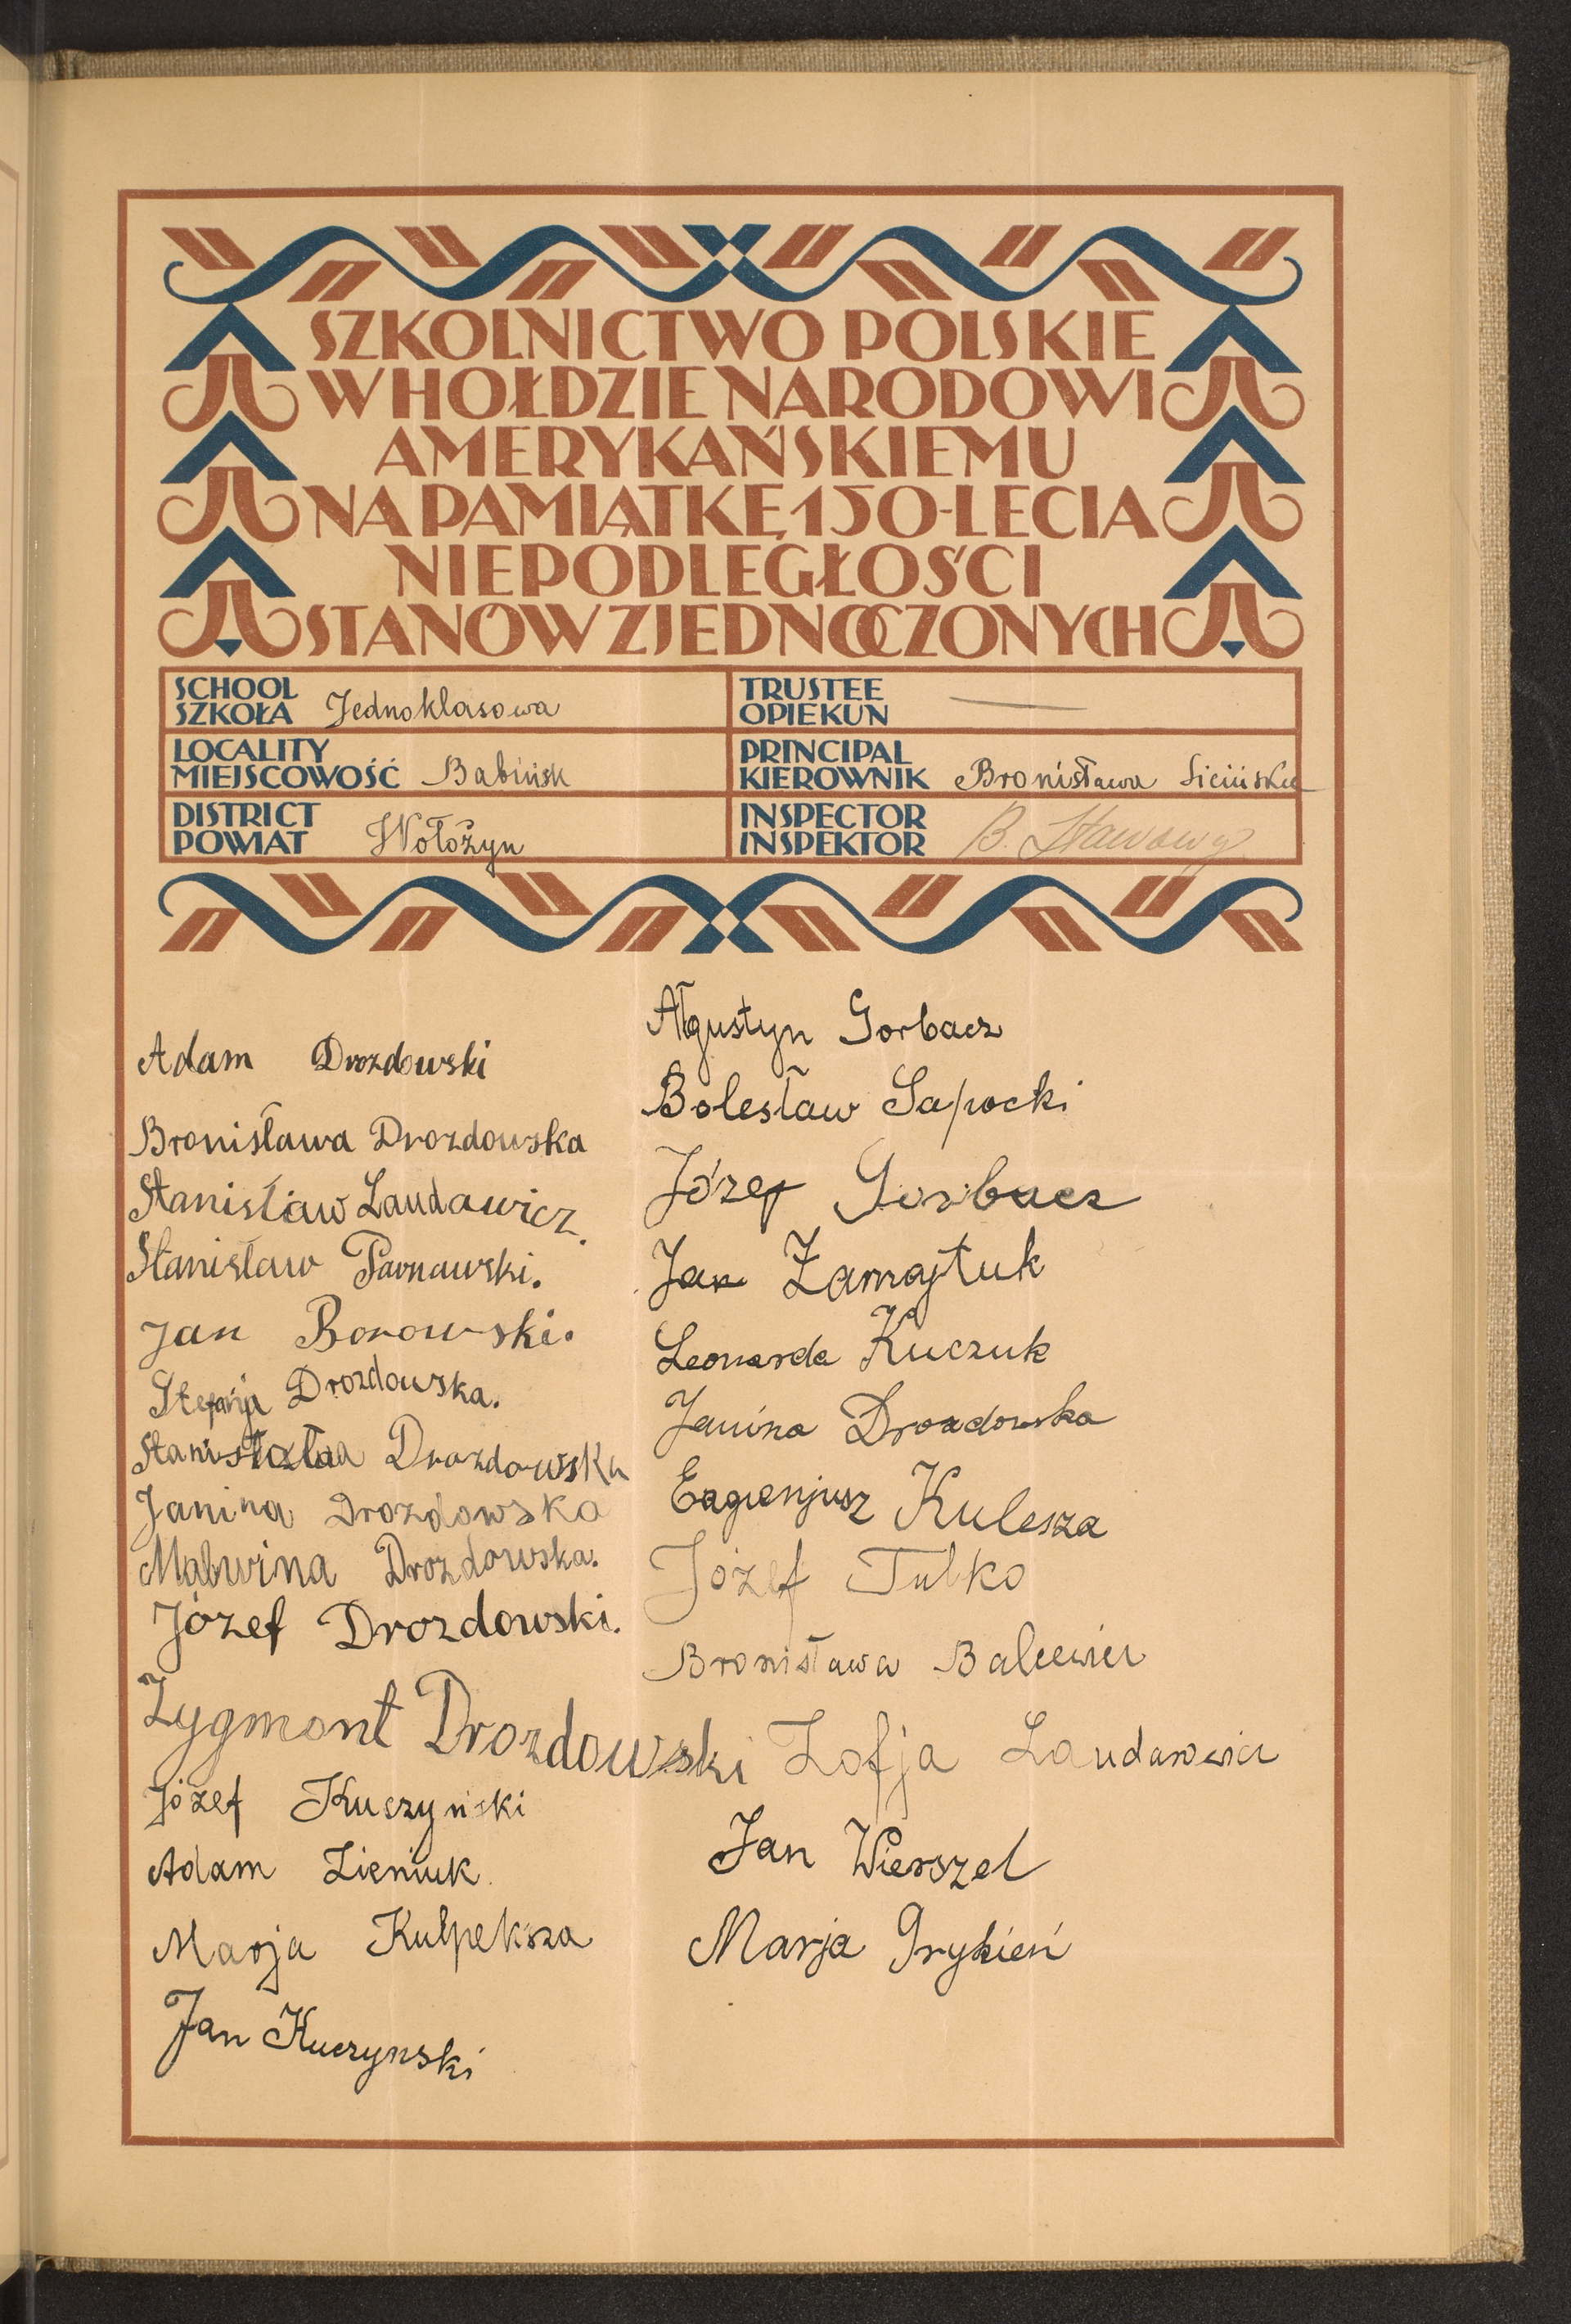 SZKOLNICTWO POLSKIE
W HOŁDZIE NARODOWI
AMERYKAŃSKIEMU
NA PAMIĄTKĘ 150-LECIA
NIEPODLEGŁOŚCI
STANÓW ZJEDNOCZONYCH
SCHOOL
SZKOŁA Jednoklasowa
TRUSTEE
OPIEKUN
LOCALITY
MIEJSCOWOŚĆ Babińsk
PRINCIPAL
KIEROWNIK Bronisława Licińska
DISTRICT
POWIAT Wołożyn
INSPECTOR
INSPEKTOR B. Stawowy
Adam Drozdowski
Bronisława Drozdowska
Stanisław Laudawicz.
Stanisław Parnawski.
Jan Borowski.
Stefanja Drozdowska.
Drozdowska
Janina Drozdowska
Malwina Drozdowska.
Józef Drozdowski.
Zygmont Drozdowski
Józef Kuczyński
Adam Zieniuk.
Marja Kulpeksza
Jan Kuczynski
Gorbacz
Bolesław Sapocki
Józef Gorbacz
Jan Zamojtuk
Leonarda Kuczuk
Janina Drozdowska
Kulesza
Józef Tubko
Bronisława Balcewicz
Zofja Laudarowicz
Jan Wierszel
Marja Grykień